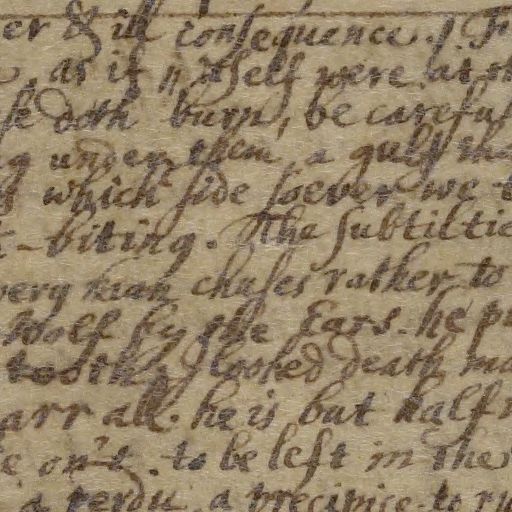 er & ill consequence. F
as if itself were at
se doth burn, be careful
g under them, a gulf tha
which side soever we t
t-biting. The subtiltie
very man chuses rather to
Wolf by the Ears. he pu
tooth, I looked death ma
arr all. he is but half
e on't. to be left in the
a perdu, a precipice, to ru